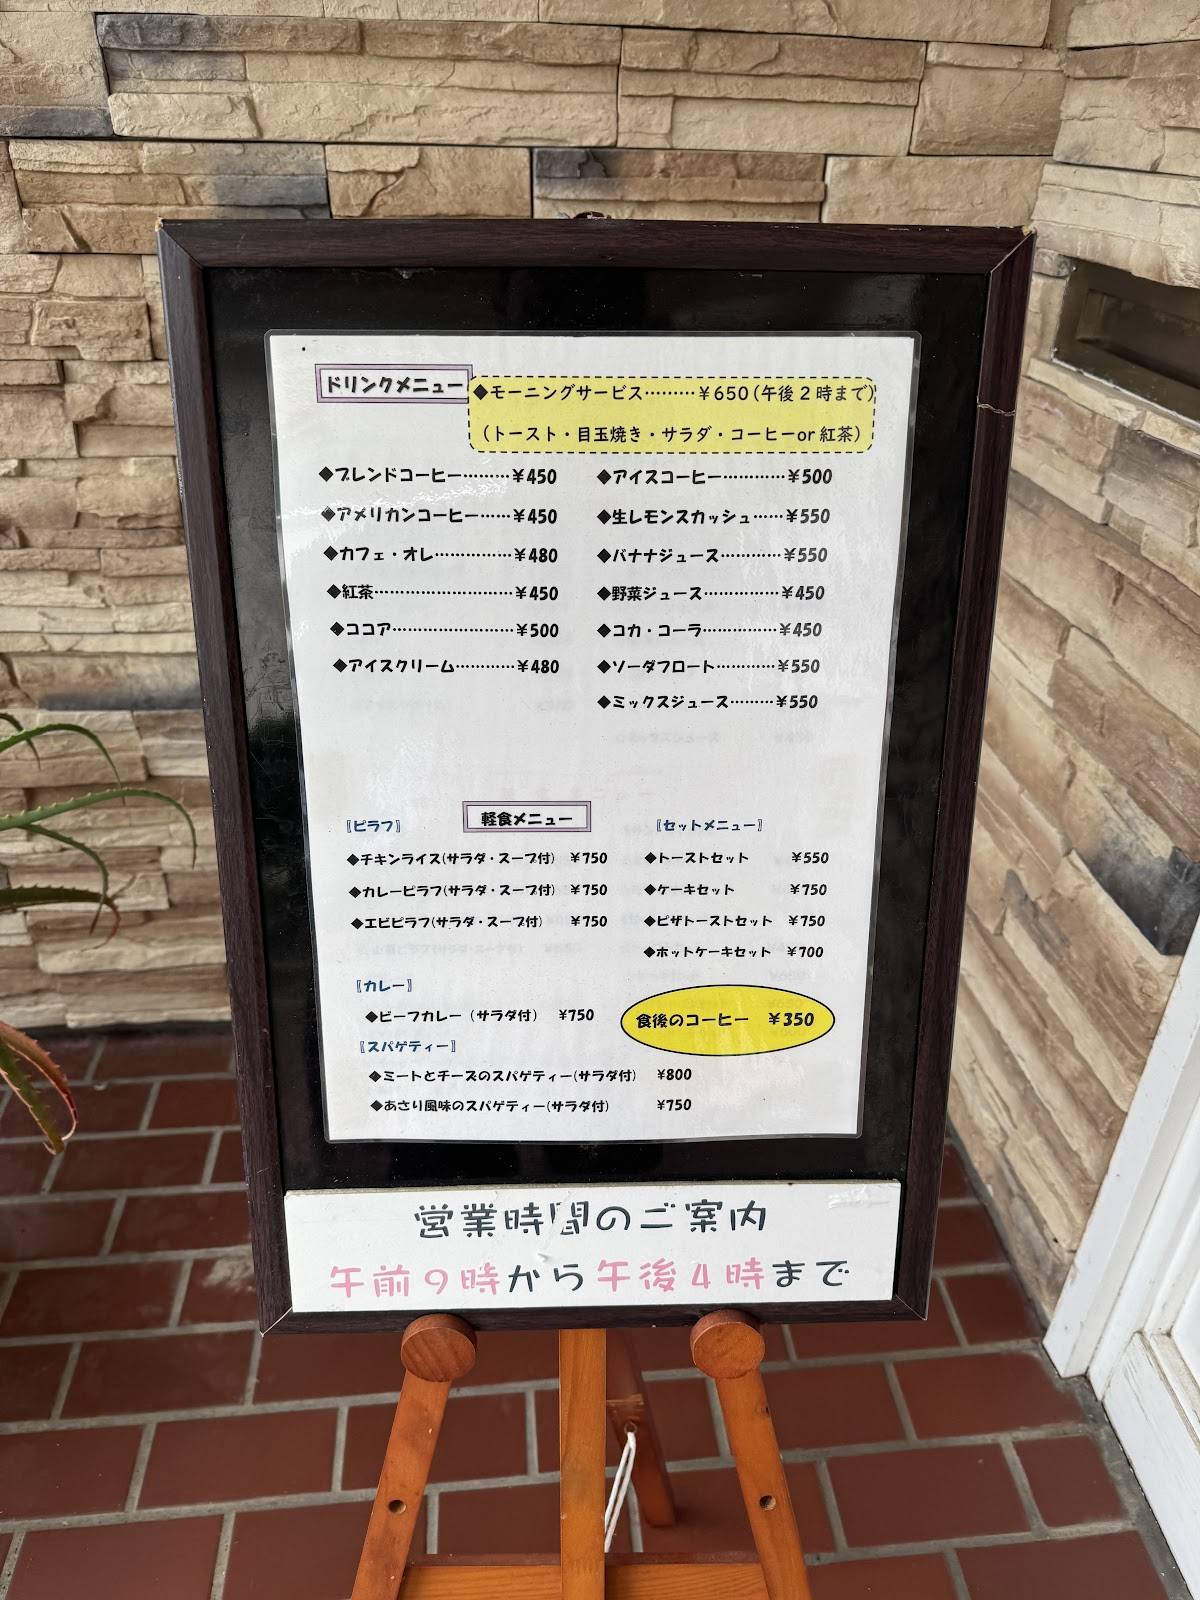 ドリンクメニュー
◆モーニングサービス………¥650(午後2時まで)
(トースト・目玉焼き・サラダ・コーヒーor紅茶)
◆ブレンドコーヒー………¥450
◆アメリカンコーヒー……¥450
◆カフェ・オレ……………¥480
◆紅茶………………………¥450
◆ココア……………………¥500
◆アイスクリーム…………¥480
◆アイスコーヒー…………¥500
◆生レモンスカッシュ……¥550
◆バナナジュース…………¥550
◆野菜ジュース……………¥450
◆コカ・コーラ……………¥450
◆ソーダフロート…………¥550
◆ミックスジュース………¥550
軽食メニュー
『ピラフ』
◆チキンライス(サラダ・スープ付) ¥750
◆カレーピラフ(サラダ・スープ付) ¥750
◆エビピラフ(サラダ・スープ付) ¥750
『カレー』
◆ビーフカレー(サラダ付) ¥750
『スパゲティー』
◆ミートとチーズのスパゲティー(サラダ付) ¥800
◆あさり風味のスパゲティー(サラダ付) ¥750
『セットメニュー』
◆トーストセット ¥550
◆ケーキセット ¥750
◆ピザトーストセット ¥750
◆ホットケーキセット ¥700
食後のコーヒー ¥350
営業時間のご案内
午前9時から午後4時まで